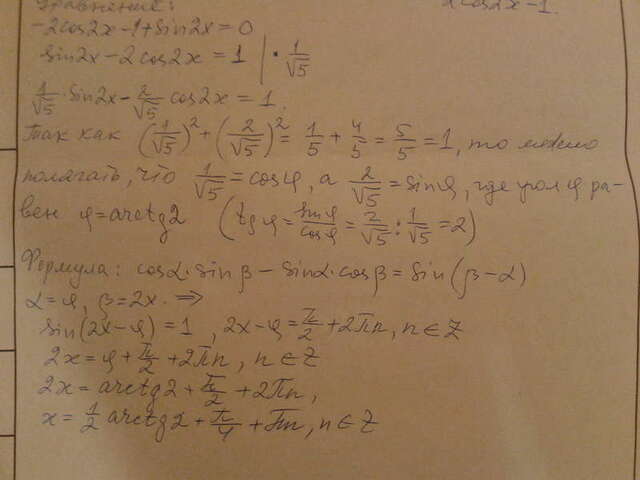 Уравнение: 2cos2x-1.
-2cos2x-1+sin2x=0
sin2x-2cos2x=1 | · 1/√5
1/√5 · sin2x - 2/√5 cos2x = 1.
Так как (1/√5)² + (2/√5)² = 1/5 + 4/5 = 5/5 = 1, то можно
полагать, что 1/√5 = cosφ, а 2/√5 = sinφ, где угол φ ра-
вен φ=arctg2 (tgφ = sinφ/cosφ = 2/√5 : 1/√5 = 2)
Формула: cosα·sinβ - sinα·cosβ = sin(β-α)
α=φ, β=2x. ⇒
sin(2x-φ)=1, 2x-φ=π/2+2πn, n∈Z
2x=φ+π/2+2πn, n∈Z
2x=arctg2+π/2+2πn,
x=1/2 arctg2+π/4+πn, n∈Z